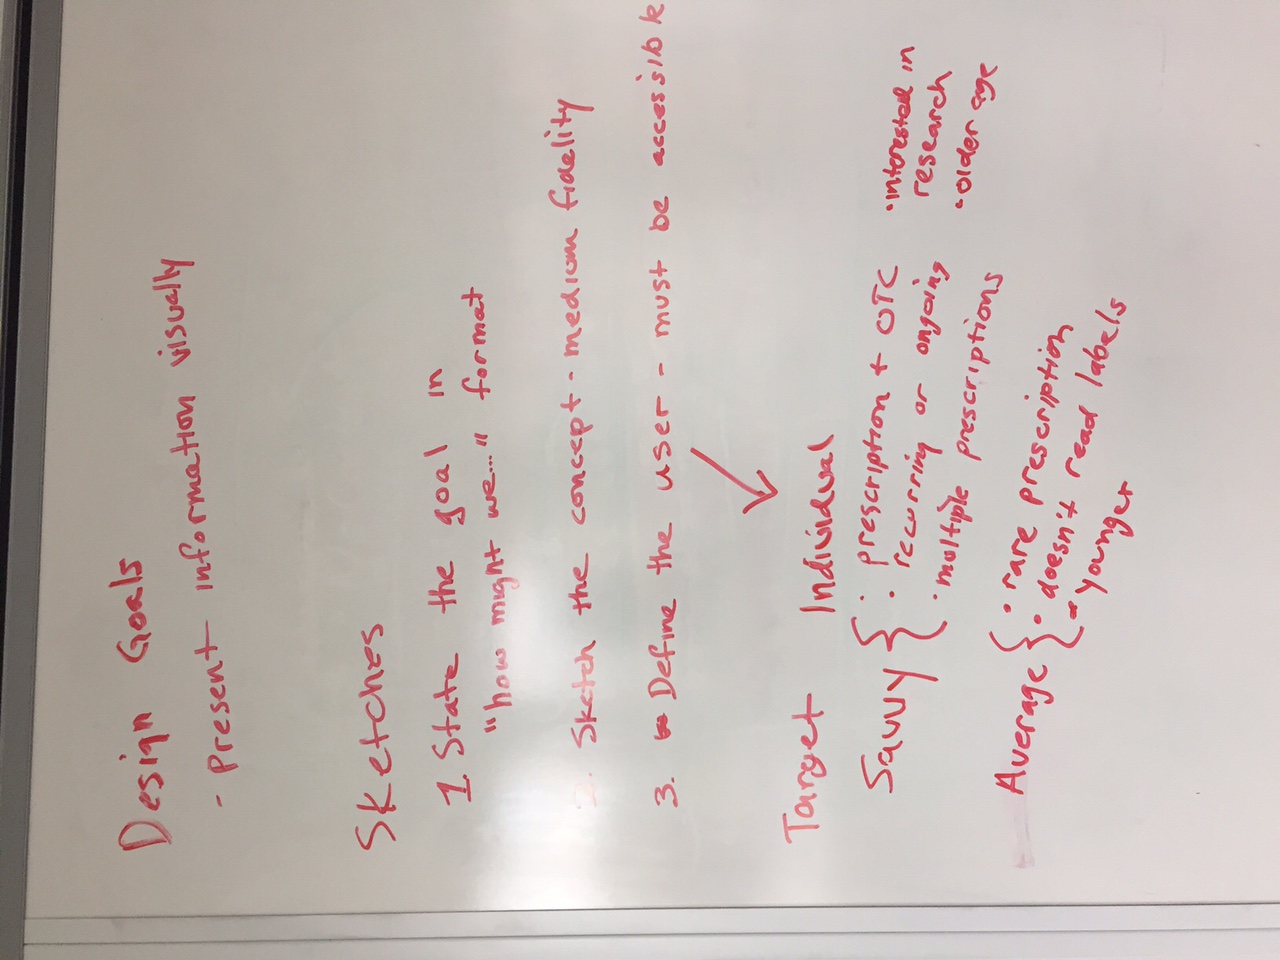 Design Goals
- Present information visually
Sketches
1. State the goal in
"how might we..." format
2. Sketch the concept - medium fidelity
3. Define the user - must be accessible
Target Individual
Savvy { • prescription + OTC
• recurring or ongoing
• multiple prescriptions
• interested in
research
• older age
Average { • rare prescription
• doesn't read labels
• younger